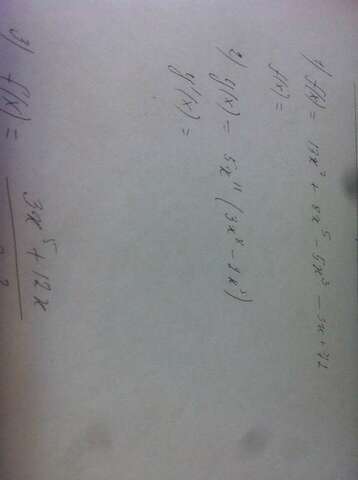 1) f(x) = 12x⁷ + 8x⁵ - 5x³ - 3x + 72
f'(x) =
2) g(x) = 5x¹¹ (3x⁸ - 2x³)
g'(x) =
3) f(x) = 32x⁵ + 12x